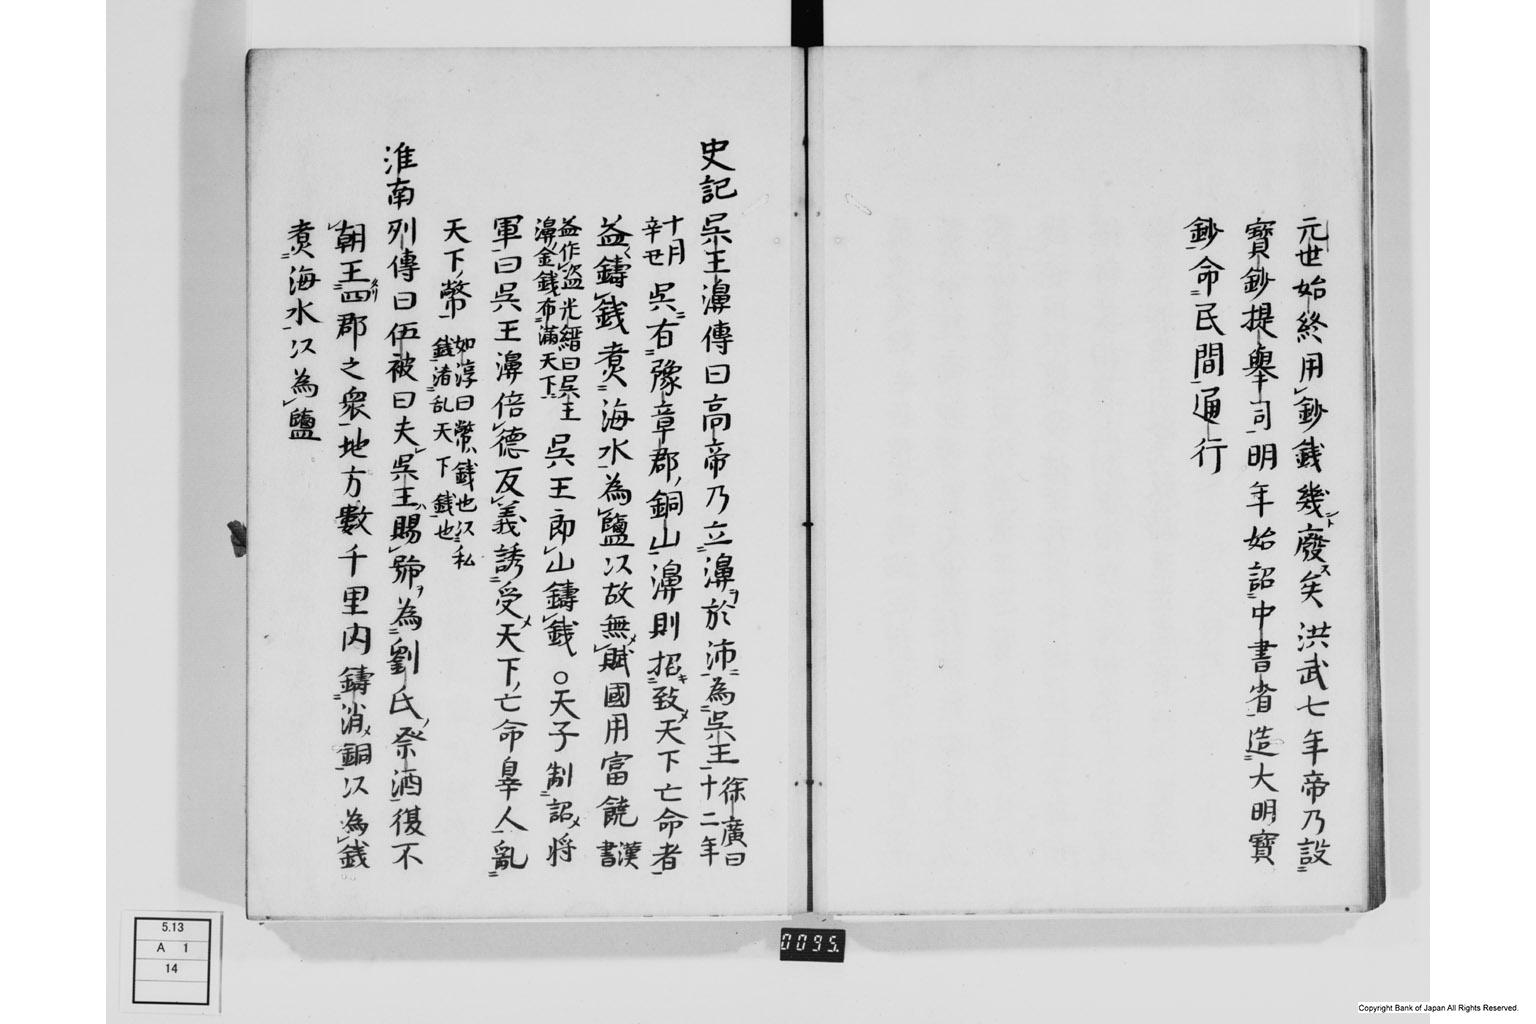 元世始終用鈔銭幾廢矣洪武七年帝乃設
寳鈔提舉司明年始詔中書省造大明寳
鈔命民間通行
史記吳王濞傳曰高帝乃立濞於沛為吳王徐廣曰十二年
十月辛丑吳有豫章郡銅山濞則招致天下亡命者
益鑄銭煮海水為鹽以故無賦國用富饒漢書
益作盗光縉曰吳王濞金銭布滿天下吳王即山鑄銭○天子制詔将
軍曰吳王濞倍德反義誘受天下亡命辠人亂
天下幣如淳曰幣銭也以私銭渚乱天下銭也
淮南列傳曰伍被曰夫吳王賜號為劉氏祭酒復不
朝王四郡之衆地方數千里内鑄消銅以為銭
煮海水以為鹽
0095.
5.13
A 1
14
Copyright Bank of Japan All Rights Reserved.